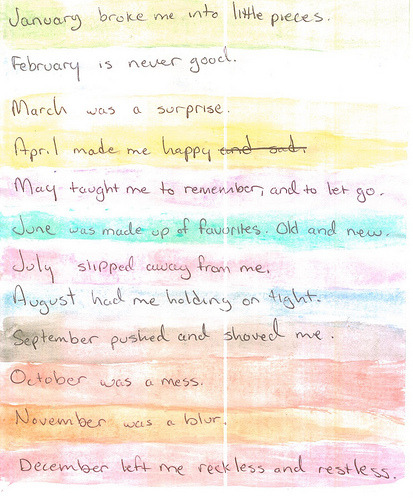 January broke me into little pieces.
February is never good.
March was a surprise.
April made me happy and sad.
May taught me to remember, and to let go.
June was made up of favorites. Old and new.
July slipped away from me.
August had me holding on tight.
September pushed and shoved me.
October was a mess.
November was a blur.
December left me reckless and restless.